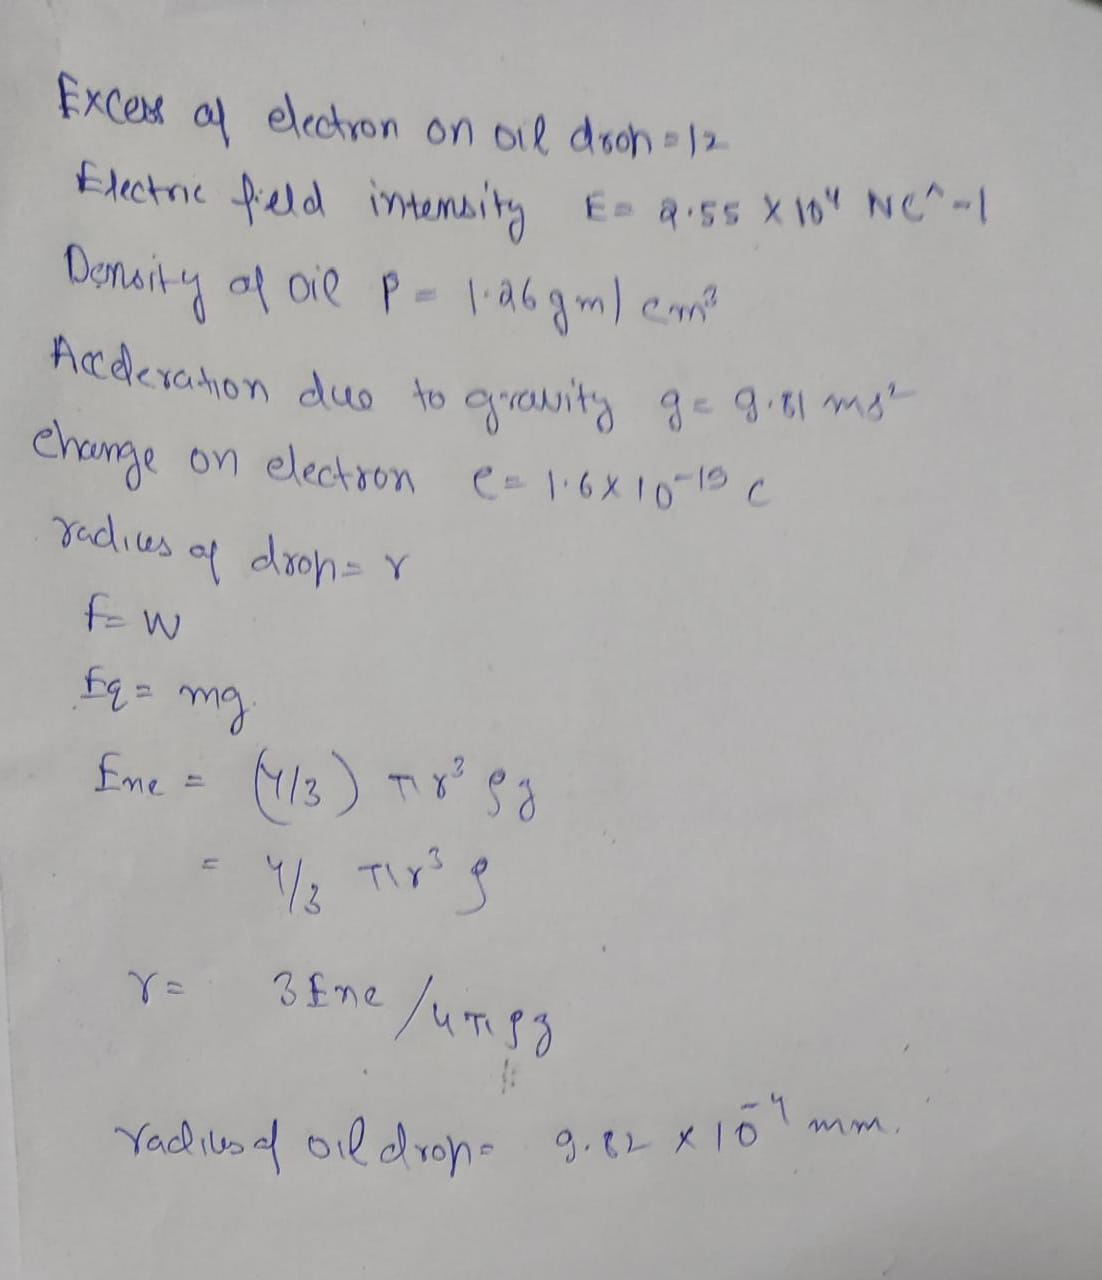 Excess of electron on oil drop = 12
Electric field intensity E = 2.55 x 10⁴ NC^-1
Density of oil P = 1.26 gm/cm³
Acceleration due to gravity g = 9.81 ms²
Charge on electron e = 1.6 x 10⁻¹⁹ C
radius of drop = r
F = W
Eq = mg.
Ene = (4/3) πr³ ρg
= 4/3 πr³ ρ
r = 3 Ene / 4πρg
radius of oil drop = 9.82 x 10⁻⁴ mm.